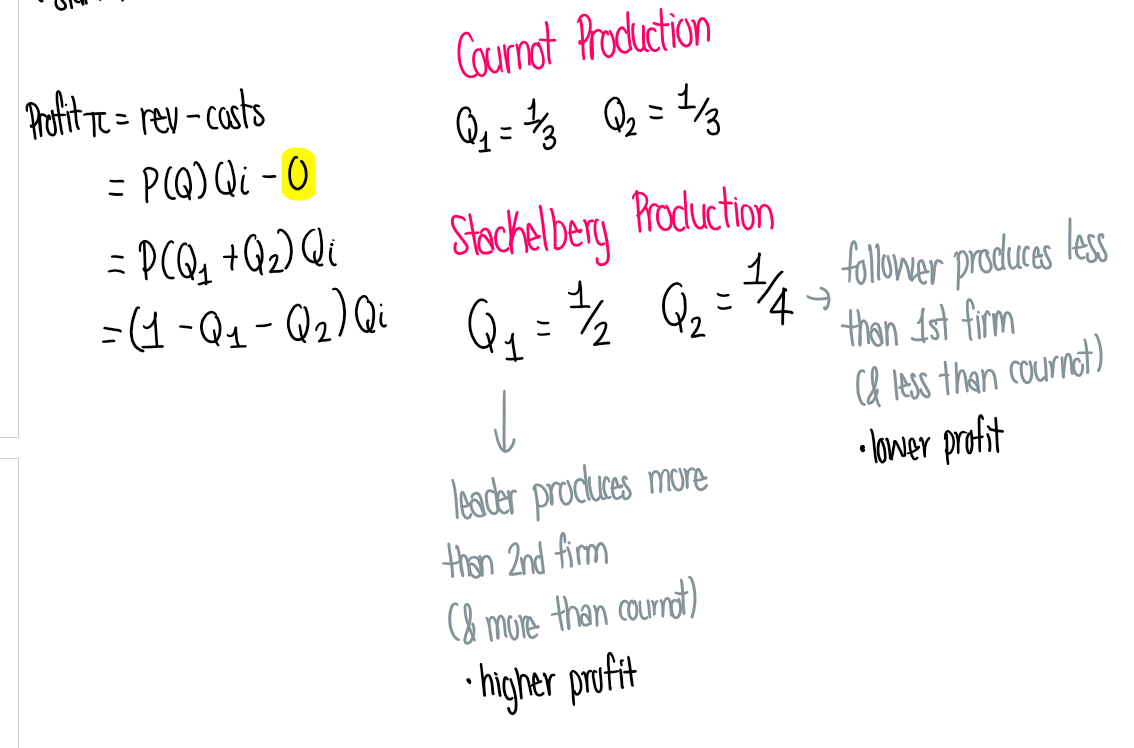 Profit π = rev - costs
= P(Q) Qi - 0
= P(Q₁ + Q₂) Qi
= (1 - Q₁ - Q₂) Qi
Cournot Production
Q₁ = 1/3 Q₂ = 1/3
Stackelberg Production
Q₁ = 1/2 Q₂ = 1/4 →
follower produces less
than 1st firm
(& less than cournot)
• lower profit
↓
leader produces more
than 2nd firm
(& more than cournot)
• higher profit